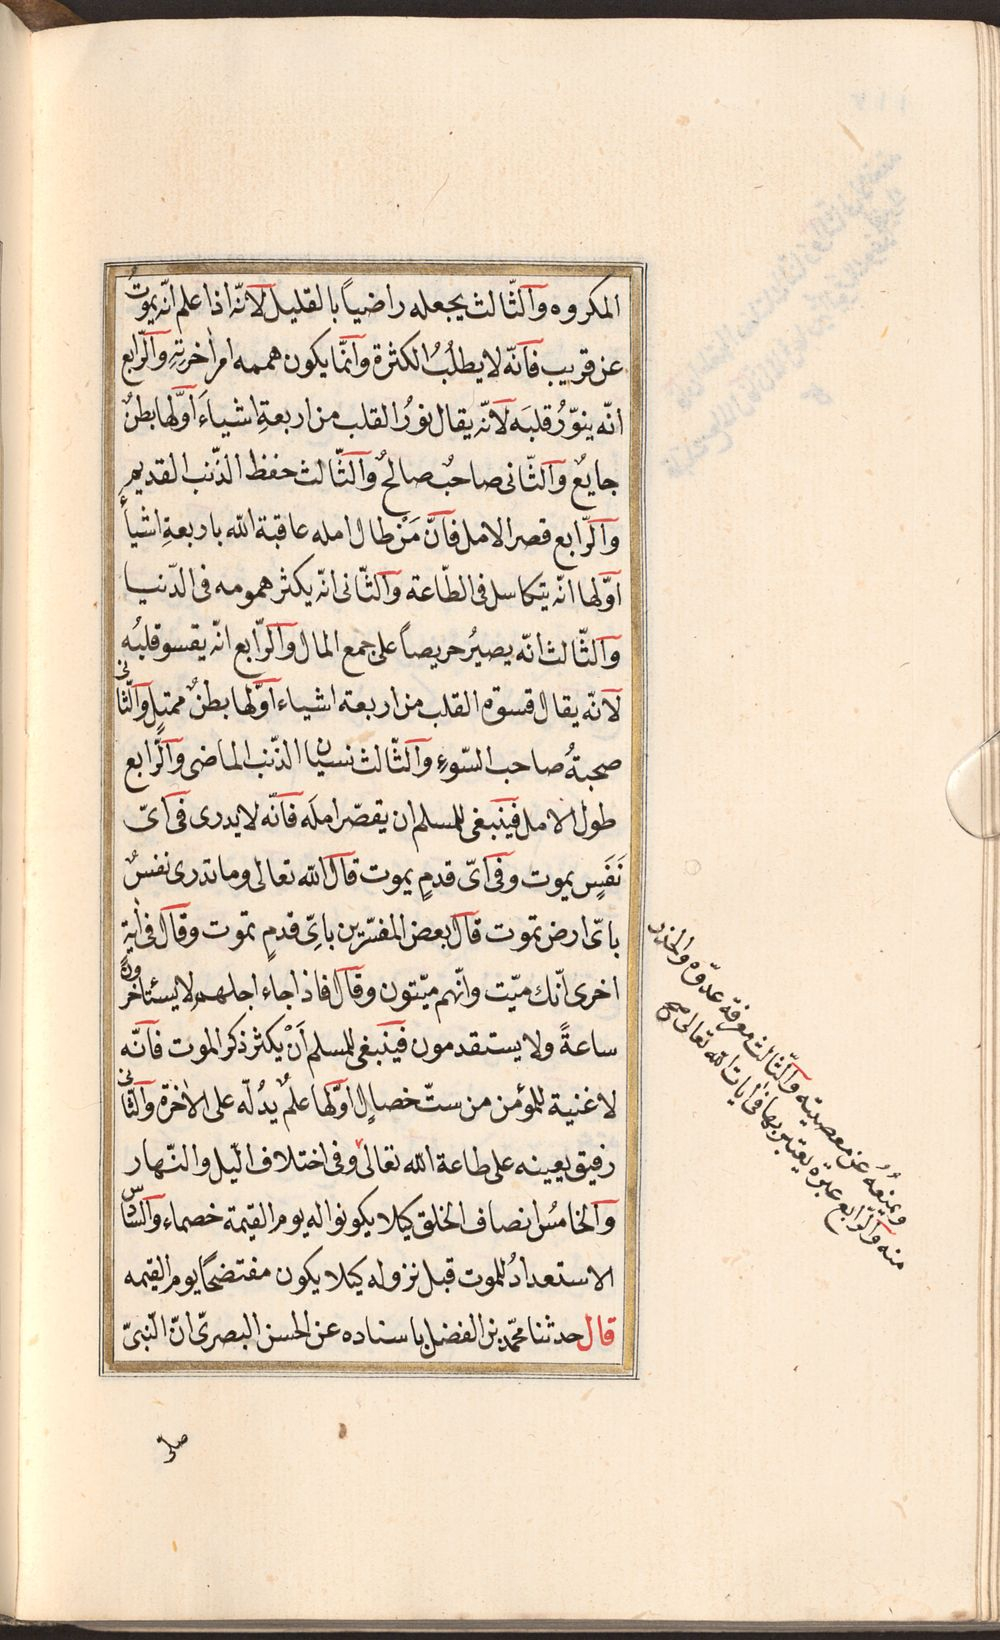 المكروه والثّالث يجعله راضياً بالقليل لانّه اذا علم انّه يموتُ
عن قريب فانّه لا يطلُبُ الكثرة وانّما يكون هممه امر اٰخرتِهِ والرّابع
انّه ينوّرُ قلبَه لانّه يقال نورُ القلب من اربعةِ اشياءَ اوّلها بطنٌ
جايعٌ والثّانى صاحبٌ صالحٌ والثّالث حفظ الذّنب القديمِ
والرّابع قصر الامل فانّ مَنْ طال امله عاقبة الله باربعةِ اشيأ
اوّلها انّه يتكاسل فى الطّاعة والثّانى انّه يكثر همومه فى الدّنيا
والثّالث انّه يصيرُ حريصاً على جمع المال والرّابع انّه يقسو قلبُه
لانّه يقال قسوة القلب من اربعة اشياء اوّلها بطنٌ ممتلٍ والثّانى
صحبةُ صاحب السّوءِ والثّالث نسيان الذّنب الماضى والرّابع
طول الامل فينبغى للمسلم ان يقصّر املَه فانّه لا يدرى فى اىّ
نَفَسٍ يموت وفى اىّ قدمٍ يموت قال الله تعالى وما تدرى نفسٌ
باىّ ارض تموت قال بعض المفسّرين باىِّ قدمٍ تموت وقال فى اٰيةٍ
اخرى انّك ميّت وانّهم ميّتون وقال فاذا جاء اجلهم لا يستأخرون
ساعةً ولا يستقدمون فينبغى للمسلم اَنْ يكثر ذكر الموت فانّه
لا غنية للمؤمن من ستّ خصالٍ اوّلها علمٌ يدُلّه على الاٰخرة والثّانى
رفيق يعينه على طاعة الله تعالى وفى اختلاف الّيل والنّهار
والخامسُ انصاف الخلق كيلا يكونوا له يوم القيمة خصماء والسّادس
الاستعدادُ للموت قبل نزوله كيلا يكون مفتضحًا يوم القيمه
قال حدثنا محمّد بن الفضل باسناده عن الحسن البصرىّ انّ النّبىّ
ويمنعُهُ عن معصيته والثّالث معرفة عدّوه والحذر
منه والرّابع عبرة يعتبر بها فى اٰيات الله تعالى صح
صلّى